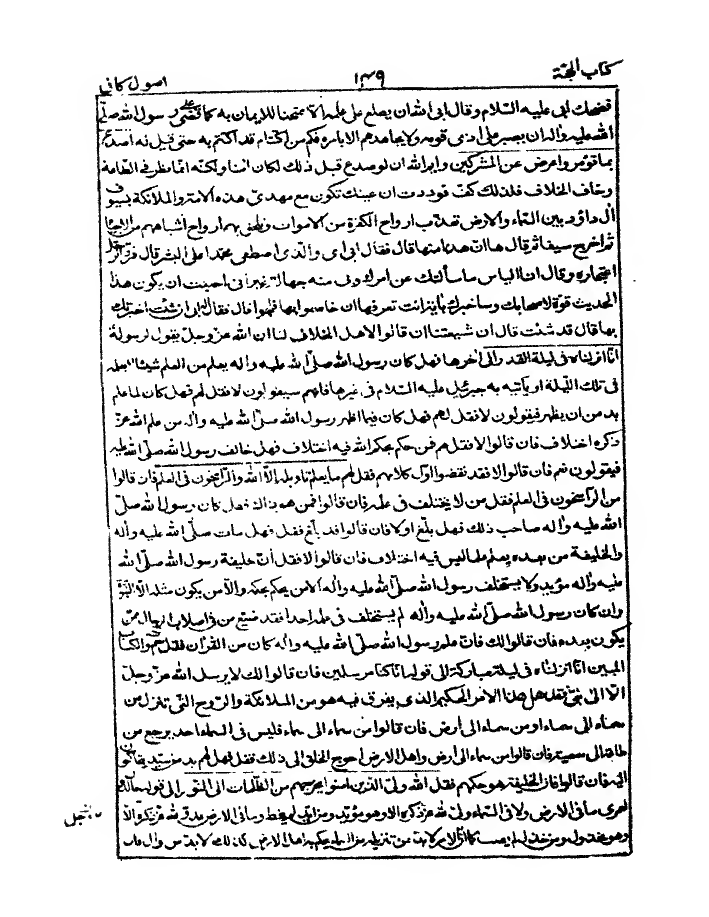 كتاب الحجة ١٤٩ اصول كافى
فضحك ابى عليه السلام وقال ابى الله ان يطلع على علمه الا ممتحنا للايمان به كما قضى على رسول الله صلى
الله عليه واله ان يصبر على اذى قومه ولا يجاهدهم الا بامره فكم من اكتتام قد اكتتم به حتى قيل له اصدع
بما تؤمر واعرض عن المشركين وايم الله ان لو صدع قبل ذلك لكان امنا ولكنه انما نظر فى الطاعة
وخاف الخلاف فلذلك كف فوددت ان عينك تكون مع مهدى هذه الامة والملائكة بسيوف
ال داود بين السماء والارض تعذب ارواح الكفرة من الاموات وتلحق بهم ارواح اشباههم من الاحياء
ثم اخرج سيفا ثم قال ها ان هذا منها قال فقال ابى اى والذى اصطفى محمدا على البشر قال فرد الرجل
اعتجاره وقال انا الياس ما سألتك عن امرك وبى منه جهالة غير انى احببت ان يكون هذا
الحديث قوة لاصحابك وساخبرك بأية انت تعرفها ان خاصموا بها فلجوا قال فقال له ابى ان شئت اخبرتك
بها قال قد شئت قال ان شيعتنا ان قالوا لاهل الخلاف لنا ان الله عز وجل يقول لرسوله
انا انزلناه فى ليلة القدر الى اخرها فهل كان رسول الله صلى الله عليه واله يعلم من العلم شيئا لا يعلمه
فى تلك الليلة او يأتيه به جبرئيل عليه السلام فى غيرها فانهم سيقولون لا فقل لهم فهل كان لما علم
بد من ان يظهر فيقولون لا فقل لهم فهل كان فيما اظهر رسول الله صلى الله عليه واله من علم الله عز
ذكره اختلاف فان قالوا لا فقل لهم فمن حكم بحكم الله فيه اختلاف فهل خالف رسول الله صلى الله عليه
فيقولون نعم فان قالوا لا فقد نقضوا اول كلامهم فقل لهم ما يعلم تاويله الا الله والراسخون فى العلم فان قالوا
من الراسخون فى العلم فقل من لا يختلف فى علمه فان قالوا فمن هو ذاك فقل كان رسول الله صلى
الله عليه واله صاحب ذلك فهل بلغ او لا فان قالوا قد بلغ فقل فهل مات صلى الله عليه واله
والخليفة من بعده يعلم علما ليس فيه اختلاف فان قالوا لا فقل ان خليفة رسول الله صلى الله
عليه واله مؤيد ولا يستخلف رسول الله صلى الله عليه واله الا من يحكم بحكمه والا من يكون مثله الا النبوة
وان كان رسول الله صلى الله عليه واله لم يستخلف فى علمه احدا فقد ضيع من فى اصلاب الرجال ممن
يكون بعده فان قالوا لك فان علم رسول الله صلى الله عليه واله كان من القرآن فقل حم والكتاب
المبين انا انزلناه فى ليلة مباركة الى قوله انا كنا مرسلين فان قالوا لك لا يرسل الله عز وجل
الا الى نبى فقل هل هذا الامر الحكيم الذى يفرق فيه هو من الملائكة والروح التى تنزل من
سماء الى سماء او من سماء الى أرض فان قالوا من سماء الى سماء فليس فى السماء احد يرجع من
طاعة الى معصية فان قالوا من سماء الى ارض واهل الارض احوج الخلق الى ذلك فقل فهل لهم بد من سيد يتحاكمون
اليه فان قالوا فان الخليفة هو حكمهم فقل الله ولى الذين امنوا يخرجهم من الظلمات الى النور الى قوله خالدون
لعمرى ما فى الارض ولا فى السماء ولى لله عز ذكره الا وهو مؤيد ومن ايد لم يخط وما فى الارض عدو لله عز ذكره الا
وهو مخذول ومن خذل لم يصب كما ان الامر لا بد من تنزيله من السماء يحكم به اهل الارض كذلك لا بد من وال فان